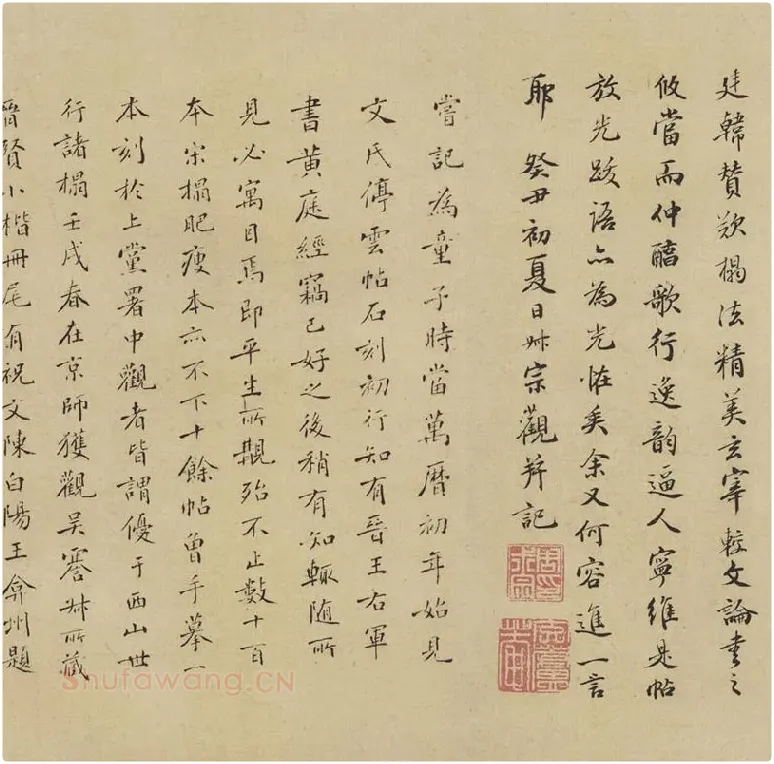 廷韓贊欵榻法精美玄宰較文論書之
攸當而仲醕歌行逸韵逼人寧維是帖
放光跋语亦為光恠矣余又何容進一言
耶 癸丑初夏日 宗觀并記
嘗記為童子時當萬曆初年始見
文氏停雲帖石刻初行知有晉王右軍
書黃庭經竊已好之後稍有知輒随所
見必寓目焉即平生所覩殆不止數十百
本宋榻肥瘦本亦不下十餘帖曾手摹一
本刻於上黨署中觀者皆謂優于西山世
行諸榻壬戌春在京師獲觀吳 所藏
晉賢小楷冊尾有祝文陳白陽王弇州題
Shufawang.CN